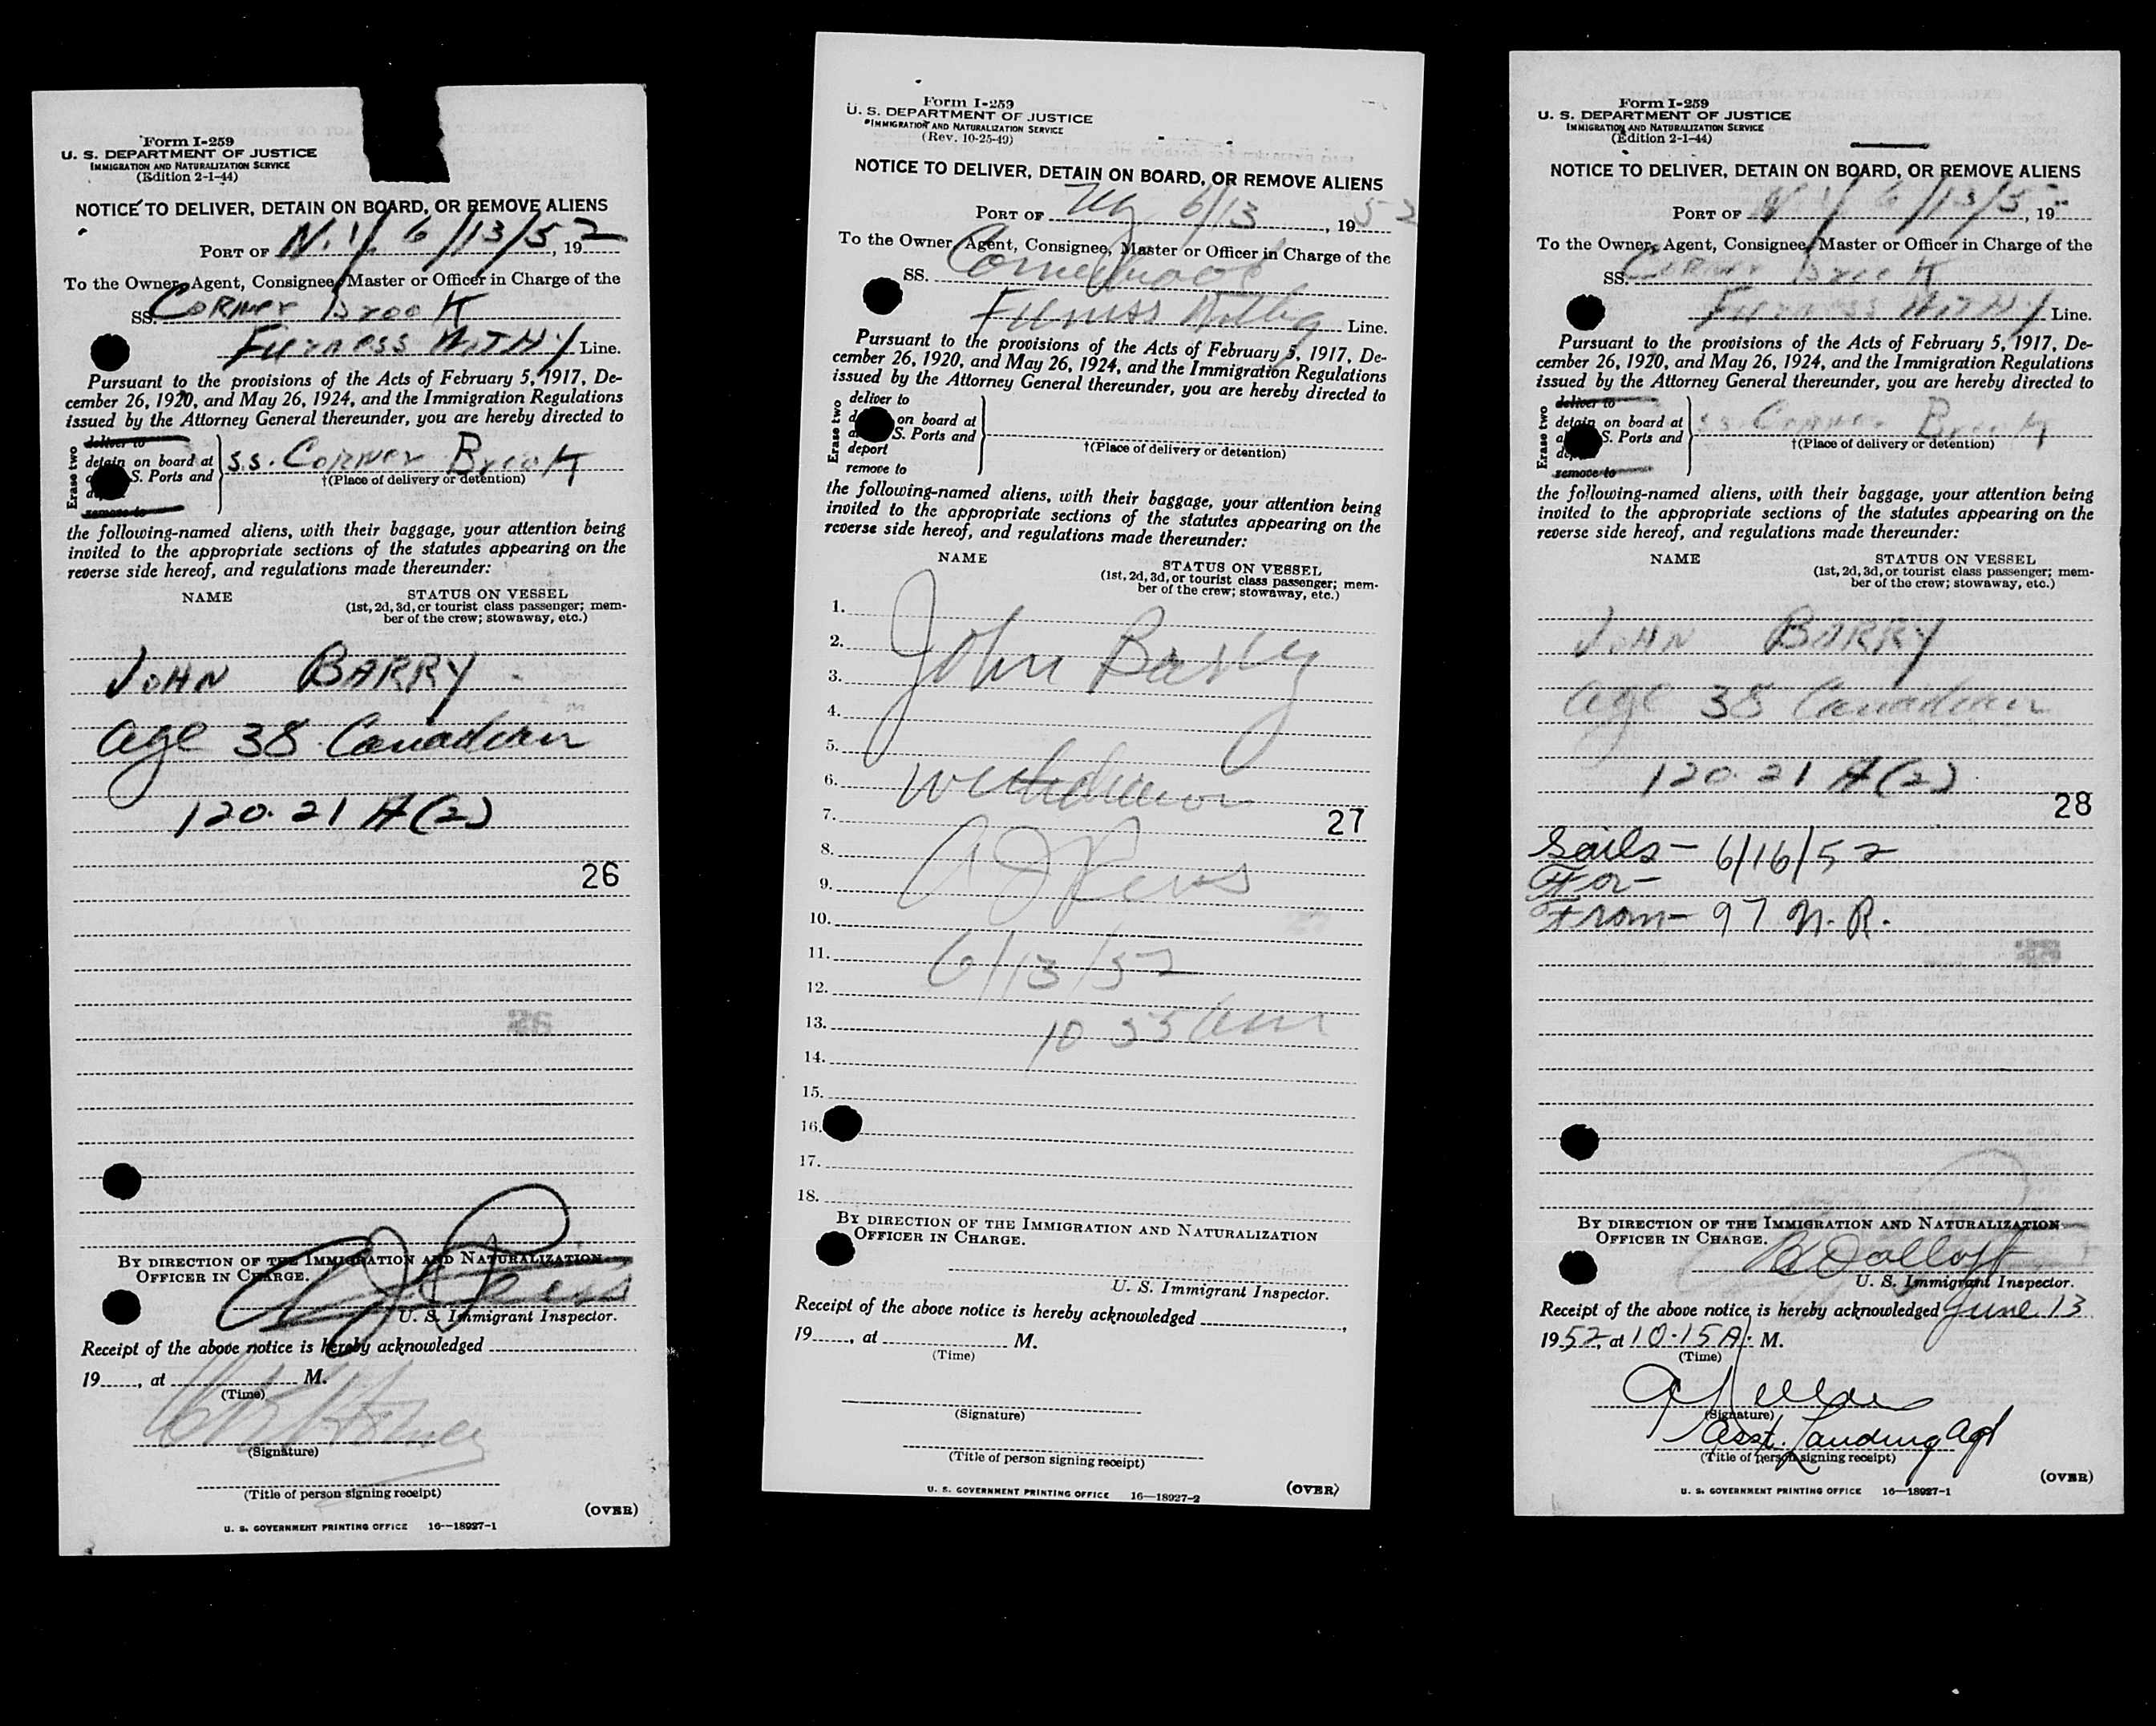 Form I-259
U. S. DEPARTMENT OF JUSTICE
IMMIGRATION AND NATURALIZATION SERVICE
(Edition 2-1-44)
NOTICE TO DELIVER, DETAIN ON BOARD, OR REMOVE ALIENS
PORT OF N.Y. 6/13/52, 19
To the Owner, Agent, Consignee, Master or Officer in Charge of the
SS. CORNER BrooK
FurnESS WITHY Line.
Pursuant to the provisions of the Acts of February 5, 1917, De-
cember 26, 1920, and May 26, 1924, and the Immigration Regulations
issued by the Attorney General thereunder, you are hereby directed to
Erase two
deliver to
detain on board at
S. Ports and
remove to
S.S. Corner Brook
†(Place of delivery or detention)
the following-named aliens, with their baggage, your attention being
invited to the appropriate sections of the statutes appearing on the
reverse side hereof, and regulations made thereunder:
NAME STATUS ON VESSEL
(1st, 2d, 3d, or tourist class passenger; mem-
ber of the crew; stowaway, etc.)
JOHN BARRY
age 38 Canadian
120.21 A(2)
26
BY DIRECTION OF THE IMMIGRATION AND NATURALIZATION
OFFICER IN CHARGE.
U. S. Immigrant Inspector.
Receipt of the above notice is hereby acknowledged
19, at M.
(Time)
(Signature)
(Title of person signing receipt)
(OVER)
U. S. GOVERNMENT PRINTING OFFICE 16—18927-1
Form I-259
U. S. DEPARTMENT OF JUSTICE
IMMIGRATION AND NATURALIZATION SERVICE
(Rev. 10-25-49)
NOTICE TO DELIVER, DETAIN ON BOARD, OR REMOVE ALIENS
PORT OF NY 6/13, 1952
To the Owner, Agent, Consignee, Master or Officer in Charge of the
SS. Cornerbrook
Furness Withy Line.
Pursuant to the provisions of the Acts of February 5, 1917, De-
cember 26, 1920, and May 26, 1924, and the Immigration Regulations
issued by the Attorney General thereunder, you are hereby directed to
Erase two
deliver to
on board at
S. Ports and
deport
remove to
†(Place of delivery or detention)
the following-named aliens, with their baggage, your attention being
invited to the appropriate sections of the statutes appearing on the
reverse side hereof, and regulations made thereunder:
NAME STATUS ON VESSEL
(1st, 2d, 3d, or tourist class passenger; mem-
ber of the crew; stowaway, etc.)
1.
2. John Barry
3.
4.
5.
6. Withdrawn
7. 27
8.
9.
10.
11. 6/13/52
12.
13. 10 55 am
14.
15.
16.
17.
18.
BY DIRECTION OF THE IMMIGRATION AND NATURALIZATION
OFFICER IN CHARGE.
U. S. Immigrant Inspector.
Receipt of the above notice is hereby acknowledged ,
19, at M.
(Time)
(Signature)
(Title of person signing receipt)
(OVER)
U. S. GOVERNMENT PRINTING OFFICE 16—18927-2
Form I-259
U. S. DEPARTMENT OF JUSTICE
IMMIGRATION AND NATURALIZATION SERVICE
(Edition 2-1-44)
NOTICE TO DELIVER, DETAIN ON BOARD, OR REMOVE ALIENS
PORT OF N.Y 6/13/5, 19
To the Owner, Agent, Consignee, Master or Officer in Charge of the
SS. CORNER BrooK
FurnESS WITHY Line.
Pursuant to the provisions of the Acts of February 5, 1917, De-
cember 26, 1920, and May 26, 1924, and the Immigration Regulations
issued by the Attorney General thereunder, you are hereby directed to
Erase two
deliver to
detain on board at
S. Ports and
remove to
S.S. Corner Brook
†(Place of delivery or detention)
the following-named aliens, with their baggage, your attention being
invited to the appropriate sections of the statutes appearing on the
reverse side hereof, and regulations made thereunder:
NAME STATUS ON VESSEL
(1st, 2d, 3d, or tourist class passenger; mem-
ber of the crew; stowaway, etc.)
JOHN BARRY
age 38 Canadian
120.21 A(2)
28
Sails- 6/16/52
For-
From- 97 N.R.
BY DIRECTION OF THE IMMIGRATION AND NATURALIZATION
OFFICER IN CHARGE.
U. S. Immigrant Inspector.
Receipt of the above notice is hereby acknowledged June 13
1952, at 10.15 A. M.
(Time)
(Signature)
Asst. Landing Agt
(Title of person signing receipt)
(OVER)
U. S. GOVERNMENT PRINTING OFFICE 16—18927-1